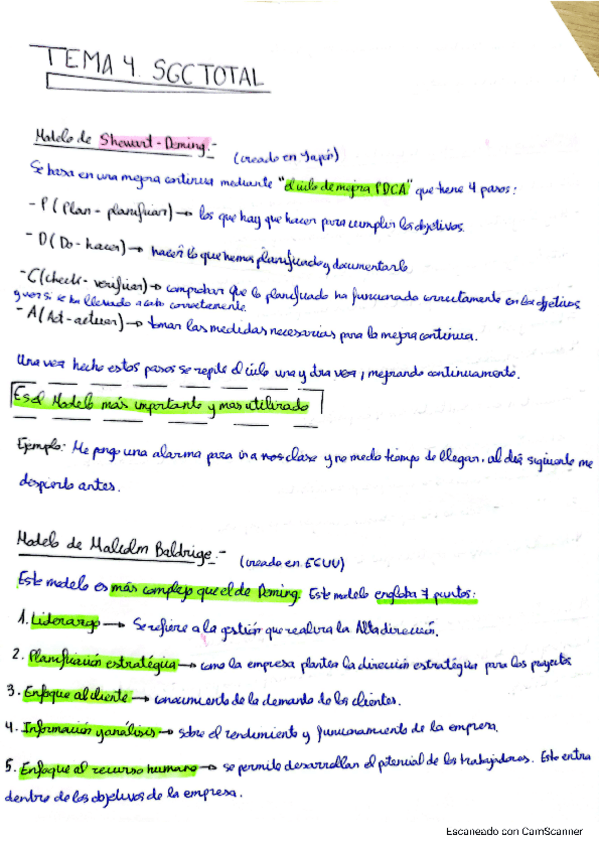 TEMA 4. SGC TOTAL
Modelo de Shewart-Deming.- (creado en Japón)
Se basa en una mejora continua mediante "el ciclo de mejora PDCA" que tiene 4 pasos:
- P (Plan - planificar) → los que hay que hacer para cumplir los objetivos.
- D (Do - hacer) → hacer lo que hemos planificado y documentarlo
- C (check - verificar) → comprobar que lo planificado ha funcionado correctamente en los objetivos
y ver si se ha llevado a cabo correctamente.
- A (Act - actuar) → tomar las medidas necesarias para la mejora continua.
Una vez hecho estos pasos se repite el ciclo una y otra vez, mejorando continuamente.
Es el Modelo más importante y mas utilizado
Ejemplo: Me pongo una alarma para ir a clase y no me da tiempo de llegar, al día siguiente me
despierto antes.
Modelo de Malcolm Baldrige.- (creado en EEUU)
Este modelo es más complejo que el de Deming. Este modelo engloba 7 puntos:
1. Liderazgo → Se refiere a la gestión que realiza la Alta dirección.
2. Planificación estratégica → como la empresa plantea la dirección estratégica para los proyectos
3. Enfoque al cliente → conocimiento de la demanda de los clientes.
4. Información y análisis → sobre el rendimiento y funcionamiento de la empresa.
5. Enfoque al recurso humano → se permite desarrollar el potencial de los trabajadores. Este entra
dentro de los objetivos de la empresa.
Escaneado con CamScanner